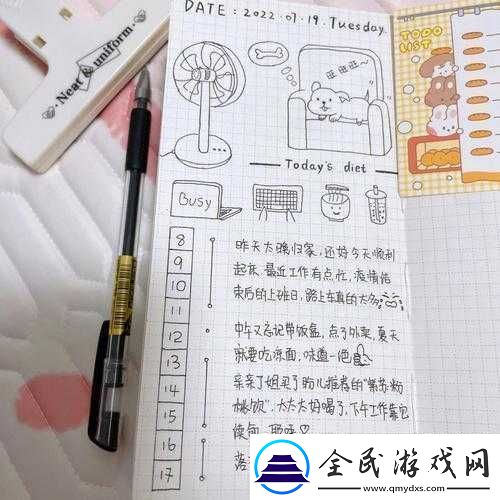 Neat & uniform
DATE : 2022 . 07 . 19 . Tuesday.
TODO
LIST
旺~旺~
Today's diet
Busy
8
9
10
11
12
13
14
15
16
17
昨天太晚归家，还好今天顺利
起床，最近工作有点忙，疫情结
束后的上班日，路上车真的太多
中午又忘记带饭盒，点了外卖，夏天
就要吃凉面，味道一绝
亲亲丁姐买了
推荐的“紫苏粉
桃饮”，太太太好喝了，下午工作
全民游戏网
www.qmydxs.com